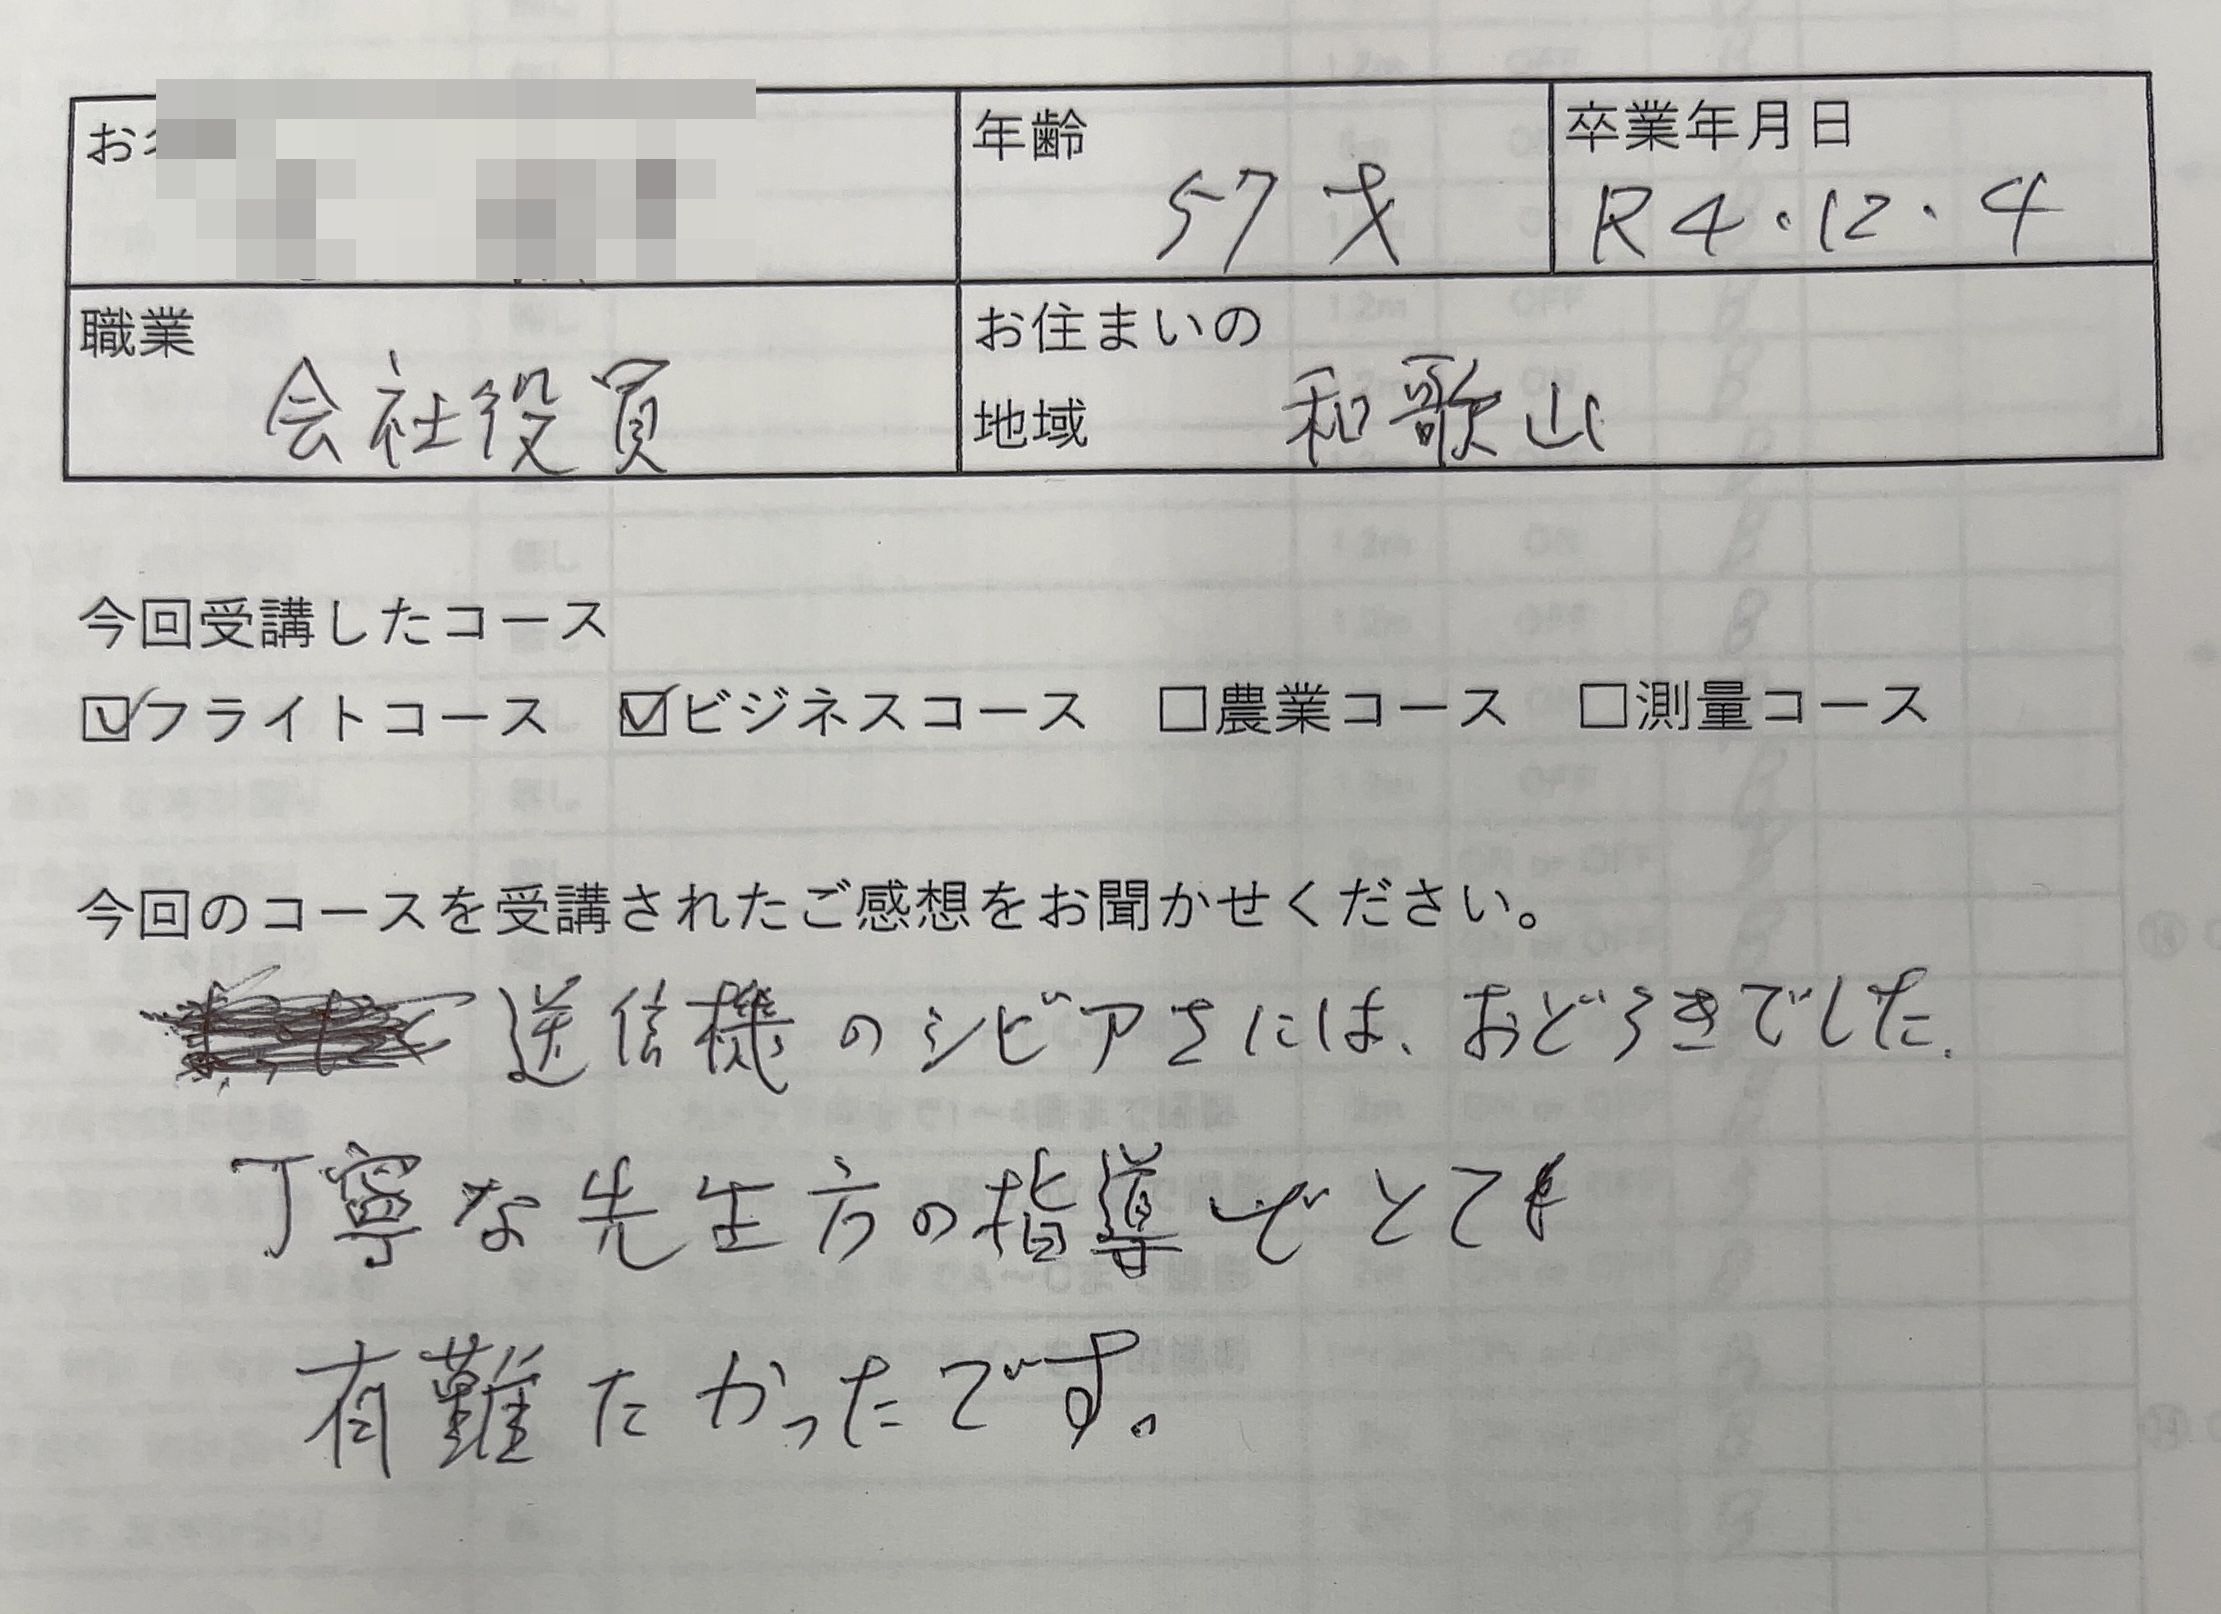 お
年齢
57才
卒業年月日
R4.12.4
職業
会社役員
お住まいの
地域
和歌山
今回受講したコース
☑フライトコース ☑ビジネスコース □農業コース □測量コース
今回のコースを受講されたご感想をお聞かせください。
送信機のシビアさには、おどろきでした.
丁寧な先生方の指導でとても
有難たかったです。